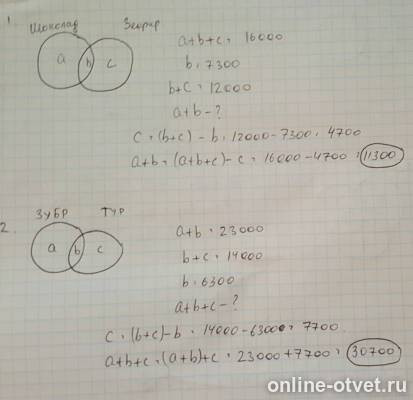 1.
Шоколад Зефир
a b c
a+b+c = 16000
b = 7300
b+c = 12000
a+b - ?
c = (b+c) - b = 12000 - 7300 = 4700
a+b = (a+b+c) - c = 16000 - 4700 = 11300
2.
ЗУБР ТУР
a b c
a+b = 23000
b+c = 14000
b = 6300
a+b+c - ?
c = (b+c) - b = 14000 - 6300 = 7700
a+b+c = (a+b)+c = 23000 + 7700 = 30700
online-otvet.ru